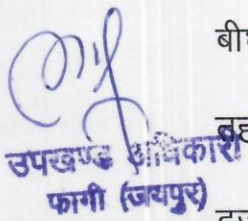 बीघ
तह
उपखण्ड अधिकारी
फागी (जयपुर)